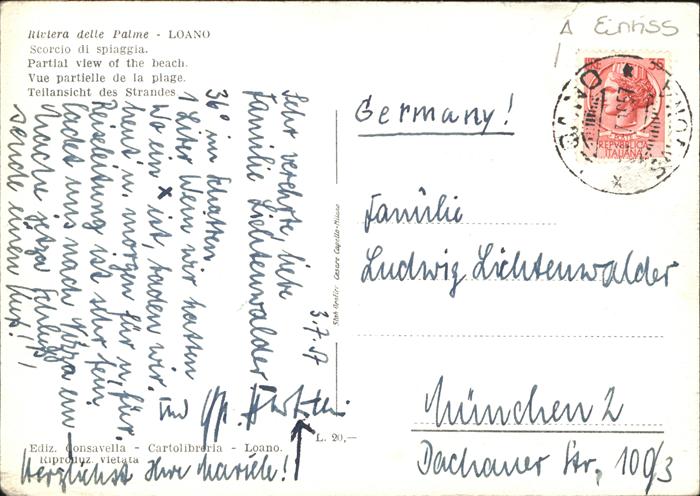 Riviera delle Palme - LOANO
Scorcio di spiaggia.
Partial view of the beach.
Vue partielle de la plage.
Teilansicht des Strandes
3.7.57
Sehr verehrte liebe
Familie Lichtenwalder!
36° im Schatten
1 Liter Wein wir hatten
Wo ein x ist, baden wir
heut u. morgen für u. für.
Reiseleitung ist sehr fein
ladet uns nach Nizza ein
Mache jetzt Schluß
sende einen Kuß!
und
Herzlichst Ihre Mariele!
A Einriss
Germany!
LIRE 35
REPUBBLICA
ITALIANA
LOANO
SAVONA
Familie
Ludwig Lichtenwalder
München 2
Dachauer Str. 100/3
L. 20,—
Ediz. Consavella - Cartolibreria - Loano.
Riproduz. vietata
Stab. Grafico Cesare Capello - Milano